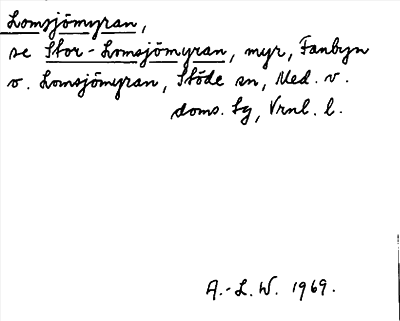 Lomsjömyran,
se Stor-Lomsjömyran, myr, Fanbyn
o. Lomsjömyran, Stöde sn, Med. v.
doms. tg, Vrnl. l.
A.-L. W. 1969.